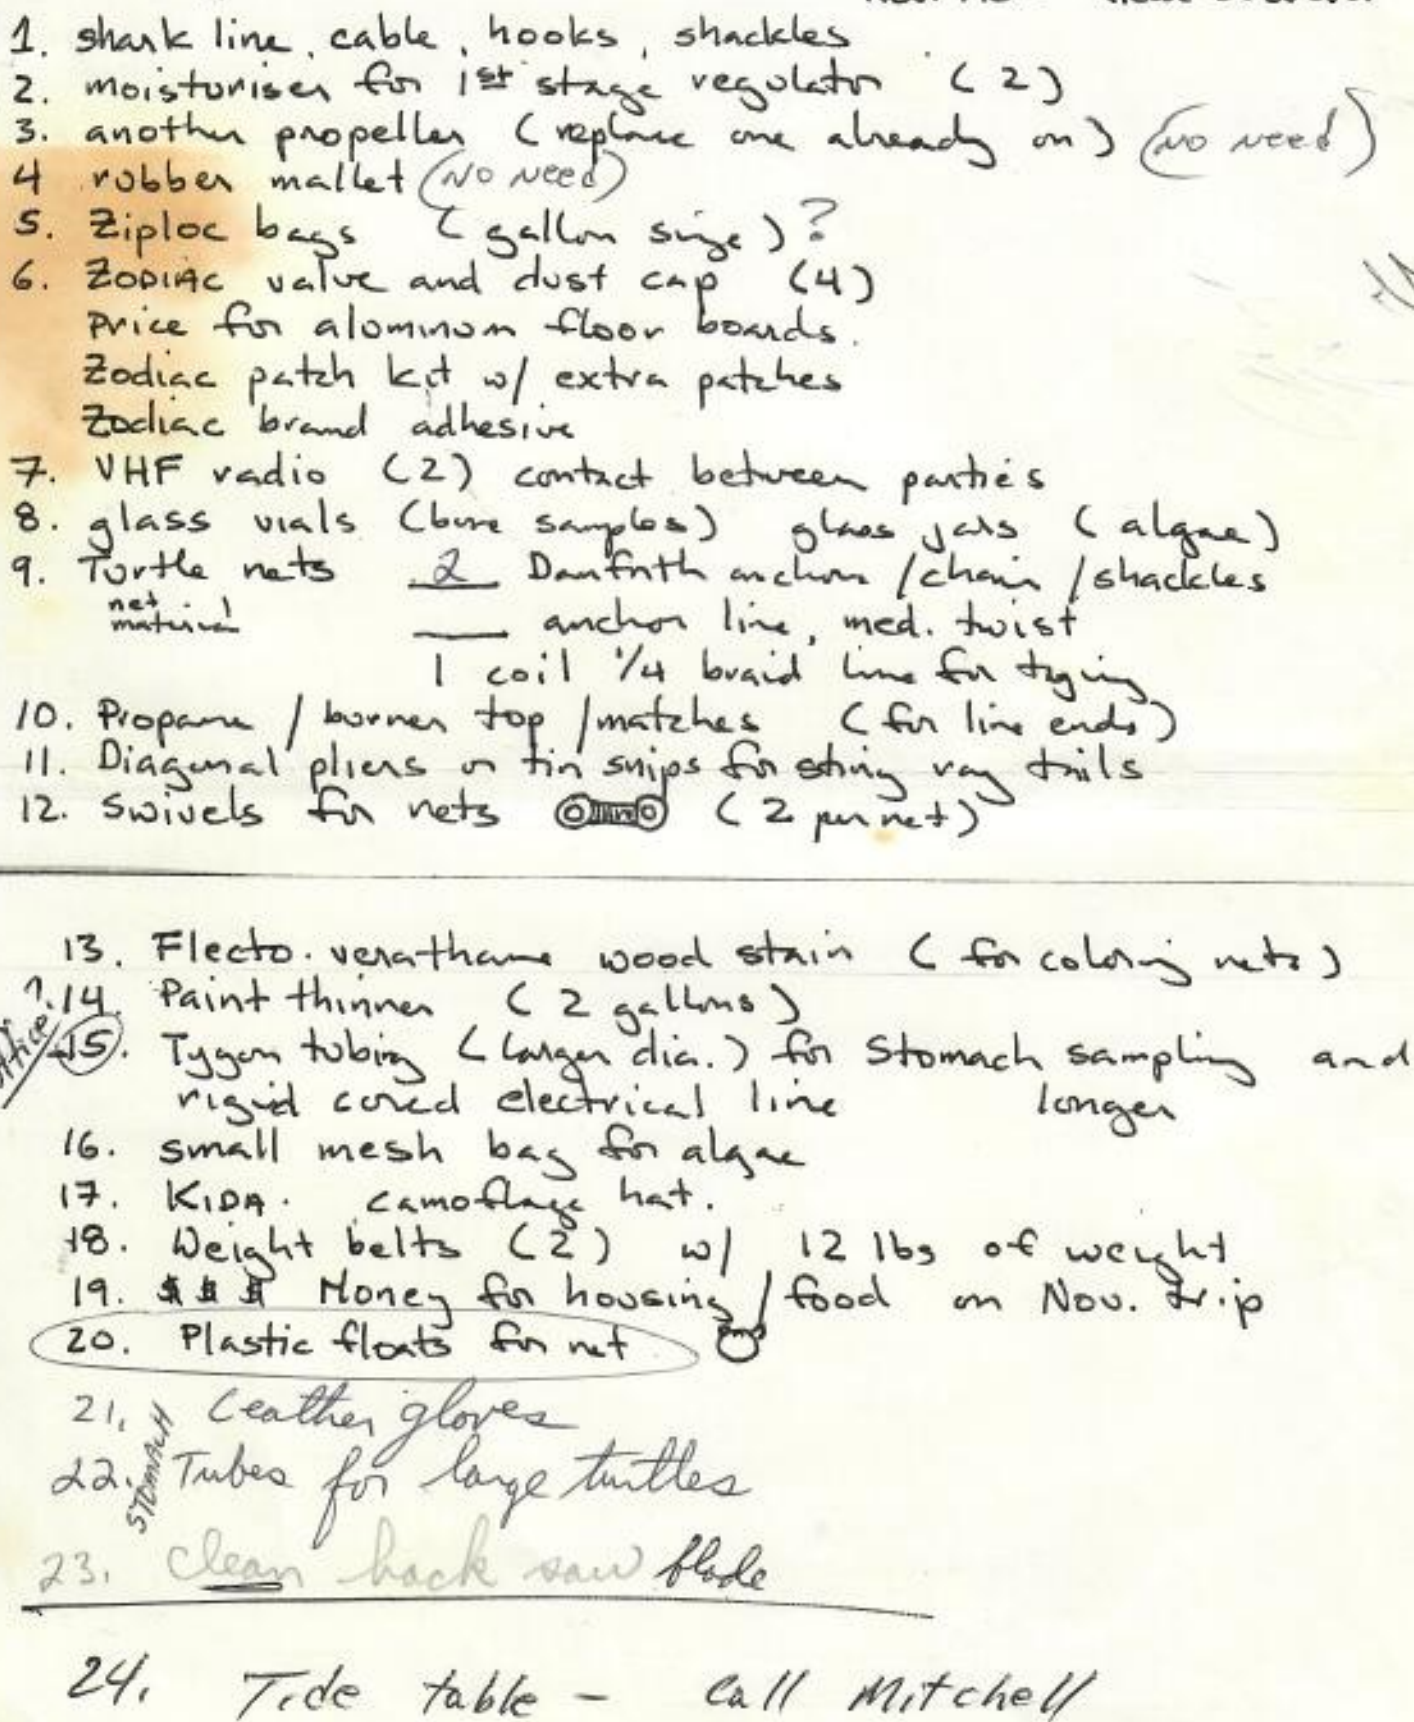 1. shark line, cable, hooks, shackles
2. moisturiser for 1st stage regulator (2)
3. another propeller (replace one already on) (NO NEED)
4 rubber mallet (NO NEED)
5. Ziploc bags (gallon size)?
6. ZODIAC valve and dust cap (4)
Price for aluminum floor boards.
Zodiac patch kit w/ extra patches
Zodiac brand adhesive
7. VHF radio (2) contact between parties
8. glass vials (bone samples) glass jars (algae)
9. Turtle nets 2 Danforth anchor /chain /shackles
net material
___ anchor line, med. twist
1 coil 1/4 braid line for tying
10. Propane / burner top /matches (for line ends)
11. Diagonal pliers or tin snips for sting ray tails
12. Swivels for nets (2 per net)
13. Flecto. verathane wood stain (for coloring nets)
?.14. Paint thinner (2 gallons)
15. Tygon tubing (larger dia.) for Stomach sampling and
rigid cored electrical line longer
16. small mesh bag for algae
17. KIDA. camoflage hat.
18. Weight belts (2) w/ 12 lbs of weight
19. $ $ $ Money for housing / food on Nov. trip
20. Plastic floats for net
21. Leather gloves
22. STOMACH Tubes for large turtles
23. clean hack saw blade
24. Tide table - Call Mitchell